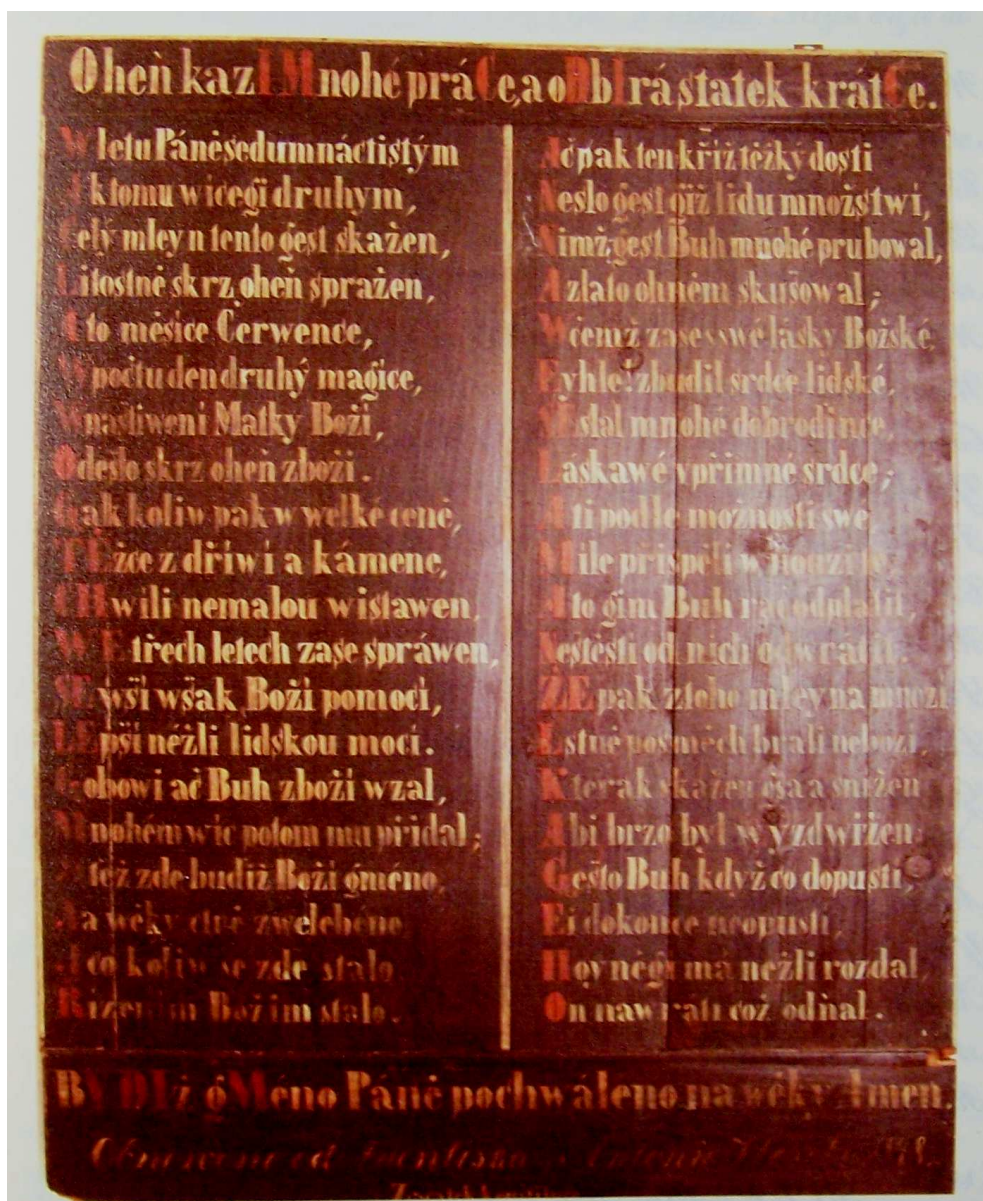 Oheň kazIMnohé práCe, a oDbIrá statek krátCe.
W letu Páně sedumnáctistým
A ktomu wícegi druhym,
Celý mleyn tento gest skažen,
Lítostně skrz oheň spražen,
A to měsíce Čerwence,
W počtu den druhý magíce,
W nastiwení Matky Boží,
Odešlo skrz oheň zboží.
Gak koliw pak w welké ceně,
TĚžce z dříwí a kámene,
CHwíli nemalou wistawen,
WE třech letech zase spráwen,
SEwší wšak Boží pomocí,
LEpší něžli lidskou mocí.
Gobowi ač Buh zboží wzal,
Mnohém wíc potom mu přidal;
též zde budiž Boží gméno,
Na wěky ctně zwelebéno
A co koliw se zde stalo
Řízením Božím stalo.
Ačpak ten kříž těžký dosti
Neslo gest giž lidu množstwí,
Nimž gest Buh mnohé prubowal,
A zlato ohněm skušowal;
W čemž zase swé lásky Božské,
Eyhle! zbudil srdce lidské,
SEslal mnohé dobrodince,
Láskawé vpřímné srdce;
A ti podle možnosti swé
Mile přispěli w nouzi
A to gim Buh rač odplatit,
Neštěstí od nich odwratit.
ŽE pak ztého mleyna mnozí
Lstně posměch brali nebozí,
Kterak skažen a snížen
Abi brzo byl wyzdwižen;
Gešto Buh když co dopustí,
Ei dokonce neopustí,
Hoyněgi má nežli rozdal,
On nawrátí což odňal.
BVDIž gMéno Páně pochwáleno na wěky Amen.
Obnoweno od Frantiska Antonína